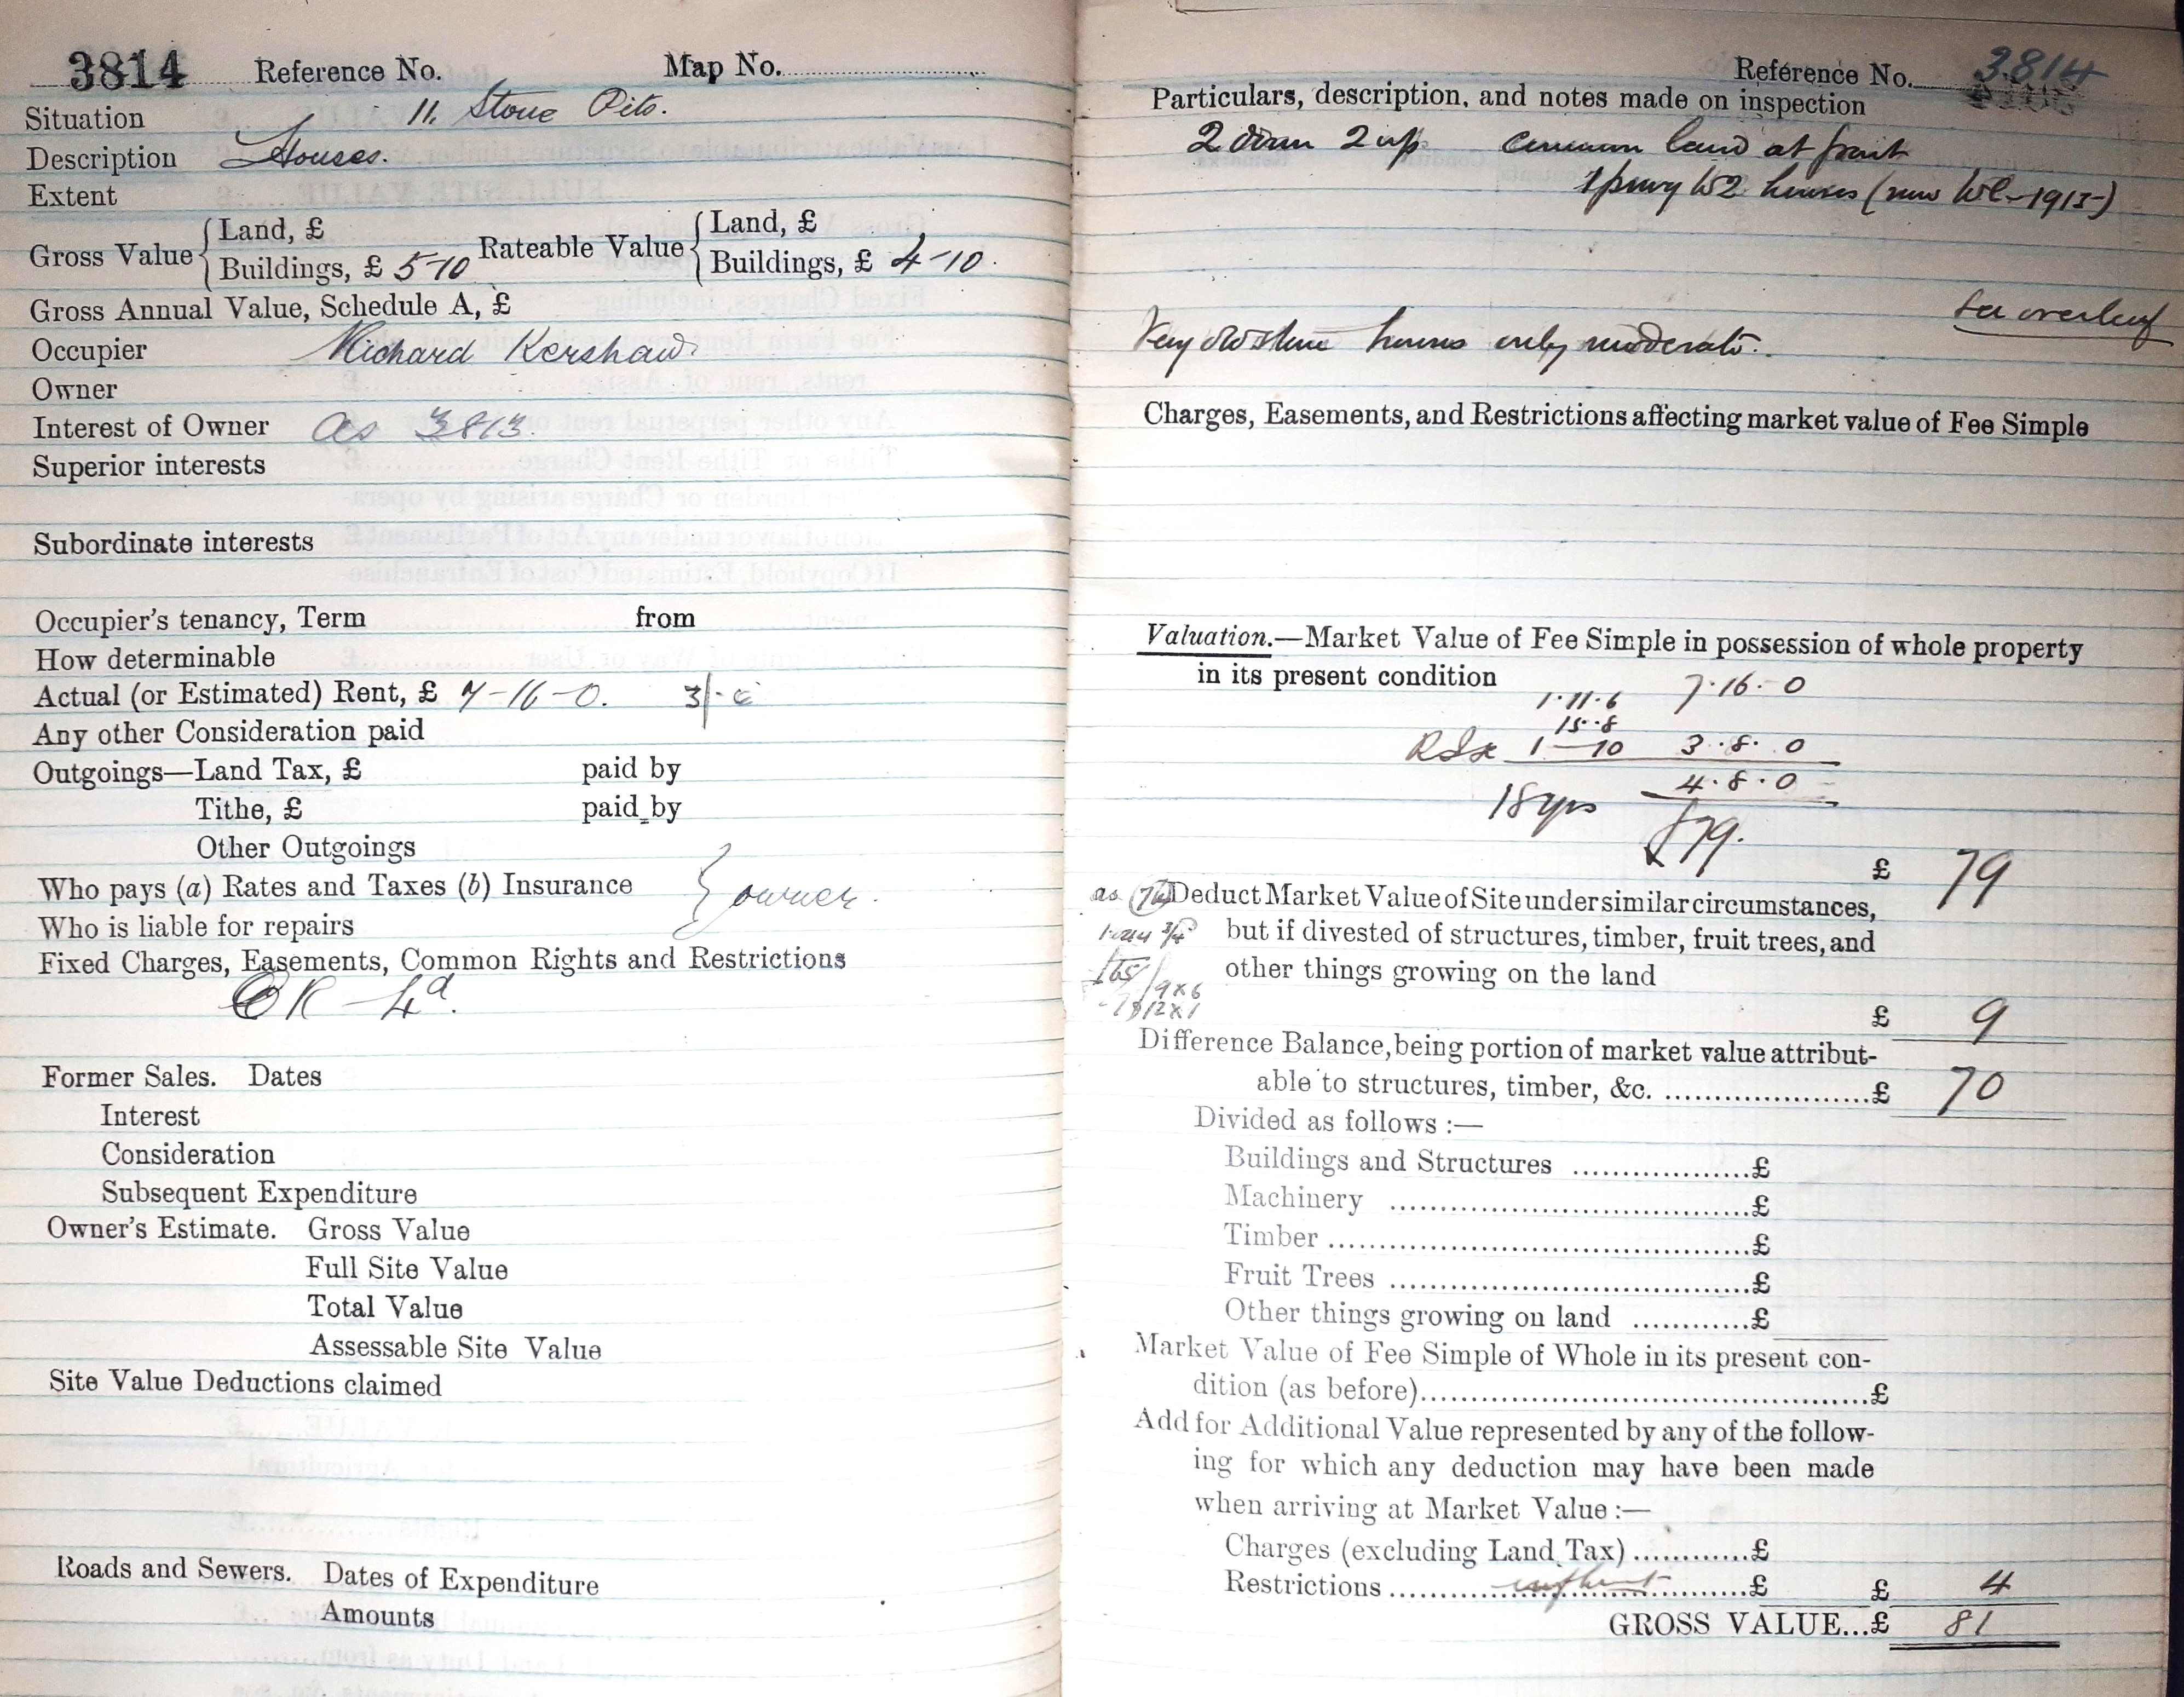 3814 Reference No. Map No.
Situation 11, Stone Pits.
Description Houses.
Extent
Gross Value { Land, £
Buildings, £ 5-10
Rateable Value { Land, £
Buildings, £ 4-10.
Gross Annual Value, Schedule A, £
Occupier Richard Kershaw
Owner
Interest of Owner as 3813.
Superior interests
Subordinate interests
Occupier's tenancy, Term from
How determinable
Actual (or Estimated) Rent, £ 7-16-0. 3/-
Any other Consideration paid
Outgoings—Land Tax, £ paid by
Tithe, £ paid by
Other Outgoings
Who pays (a) Rates and Taxes (b) Insurance } owner.
Who is liable for repairs
Fixed Charges, Easements, Common Rights and Restrictions
CR - 4d.
Former Sales. Dates
Interest
Consideration
Subsequent Expenditure
Owner's Estimate. Gross Value
Full Site Value
Total Value
Assessable Site Value
Site Value Deductions claimed
Roads and Sewers. Dates of Expenditure
Amounts
Reference No. 3814
Particulars, description, and notes made on inspection
2 down 2 up common land at front
1 privy to 2 houses (new WC-1913-)
See overleaf
Very old stone houses only moderate.
Charges, Easements, and Restrictions affecting market value of Fee Simple
Valuation.—Market Value of Fee Simple in possession of whole property
in its present condition
1.11.6 7.16.0
15.8
1-10 3.8.0
4.8.0
18 yrs £79.
£ 79
as Deduct Market Value of Site under similar circumstances,
but if divested of structures, timber, fruit trees, and
other things growing on the land
9x6
12x1
£ 9
Difference Balance, being portion of market value attribut-
able to structures, timber, &c. ......................£ 70
Divided as follows :—
Buildings and Structures ...................£
Machinery ......................................£
Timber ............................................£
Fruit Trees ......................................£
Other things growing on land ............£
Market Value of Fee Simple of Whole in its present con-
dition (as before)................................................£
Add for Additional Value represented by any of the follow-
ing for which any deduction may have been made
when arriving at Market Value :—
Charges (excluding Land Tax) ............£
Restrictions ......................................£ £ 4
GROSS VALUE...£ 81